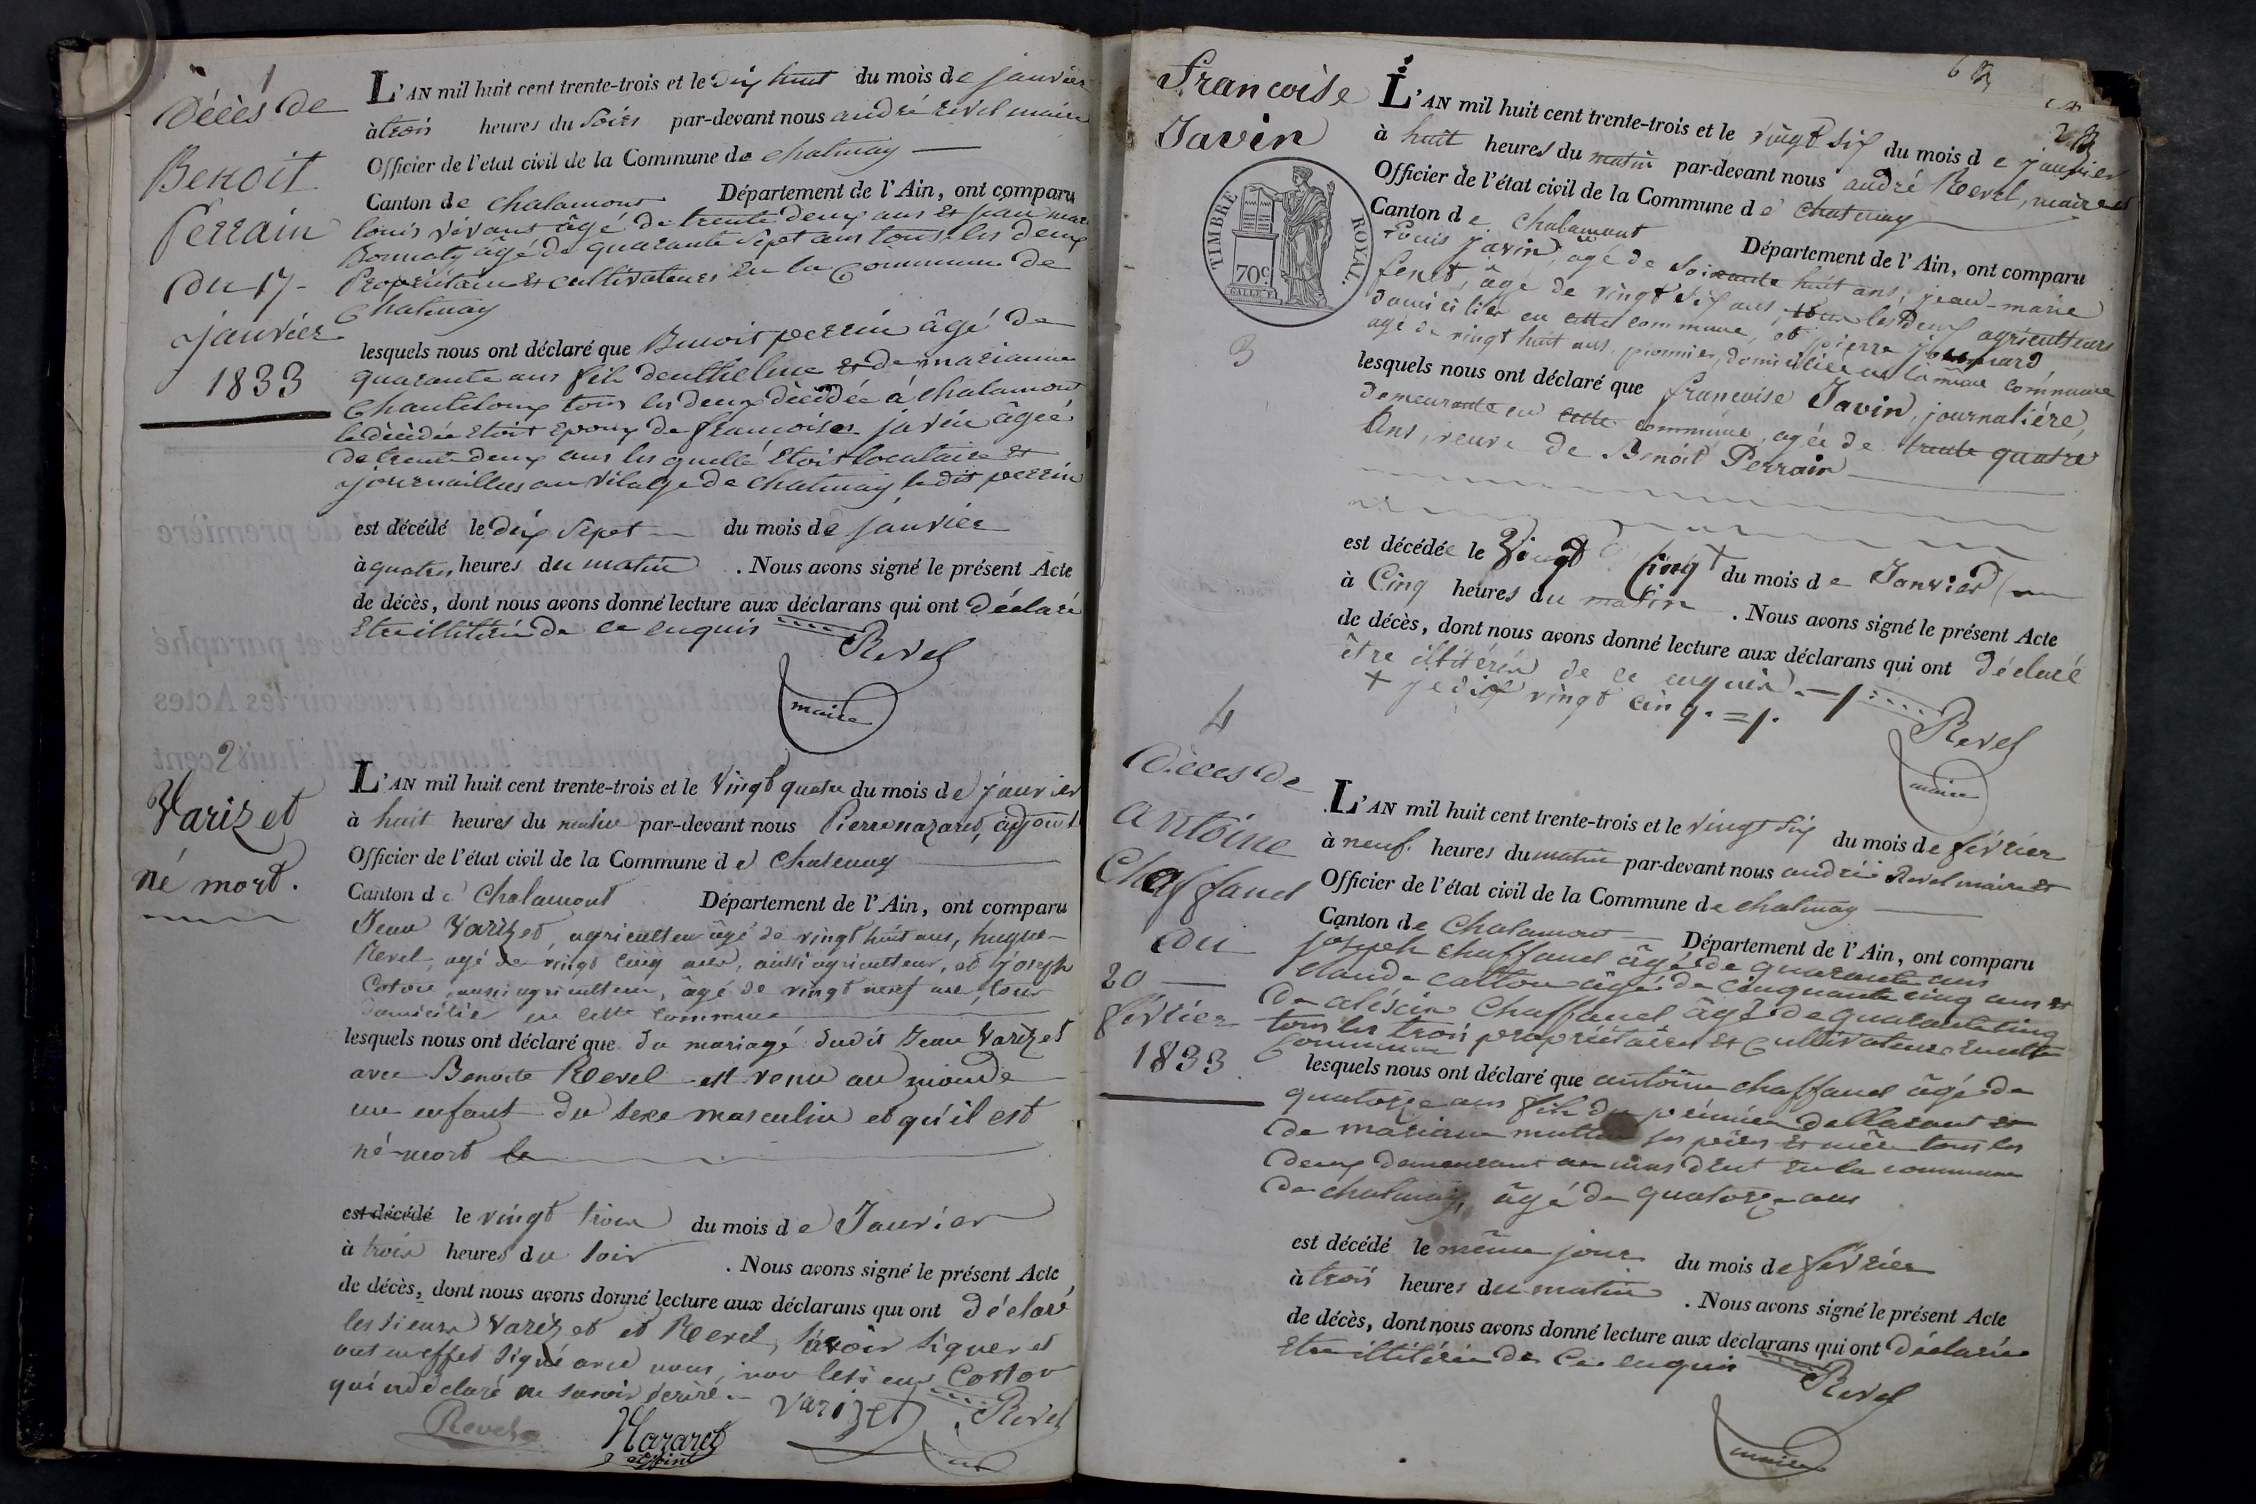 1
Décès de
Benoit
Perrain
du 17
janvier
1833
L'AN mil huit cent trente-trois et le dix huit du mois de janvier
à trois heures du Soirs par-devant nous andré revel maire
Officier de l'etat civil de la Commune de chatenay
Canton de chalamont Département de l'Ain, ont comparu
louis vivant âgé de trente deux ans et jean marie
Bonnaty âgé de quarante Sept ans tous les deux
Propriétaires et cultivateurs en la Commune de
Chatenay
lesquels nous ont déclaré que Benoit perrin âgé de
quarante ans fils denthelme et de marianne
Chanteloux tous les deux décédée à chalamont
le décédée Etoit Epoux de francoises javin âgée
de trente deux ans les quelle Etoit locataire et
journaillers au vilalge de chatenay, le dit perrin
est décédé le dix Sepet du mois de janvier
à quatres heures du matin . Nous avons signé le présent Acte
de décès, dont nous avons donné lecture aux déclarans qui ont déclaré
Etre illitérés de ce enquis
Revel
maire
2
Varizet
né mort.
L'AN mil huit cent trente-trois et le vingt quatre du mois de janvier
à huit heures du matin par-devant nous Pierre nazaret, adjoint
Officier de l'état civil de la Commune de chatenay
Canton de Chalamont Département de l'Ain, ont comparu
Jean Varizet, agriculteur âgé de vingt huit ans, hugue
Revel, agé de vingt cinq ans, aussi agriculteur, et joseph
Costou, aussi agriculteur, âgé de vingt neuf ans, tous
domiciliés en cette commune
lesquels nous ont déclaré que du mariagé dudit Jean Varizet
avec Benoite Revel est venu au monde
un enfant du sexe masculin et qu'il est
né-mort le
est décédé le vingt trois du mois de Janvier
à trois heures du soir . Nous avons signé le présent Acte
de décès, dont nous avons donné lecture aux déclarans qui ont déclaré
les sieurs Varizet et Revel, savoir signer et
ont en effet signé avec nous, non le sieur Costou
qui a déclaré ne savoir écrire.
Varizet
Revel
Revel
Nazaret
adjoint
Francoise
Javin
TIMBRE ROYAL.
70c.
3
L'AN mil huit cent trente-trois et le vingt six du mois de janvier
à huit heures du matin par-devant nous andré Revel, maire et
Officier de l'état civil de la Commune de chatenay
Canton de Chalamont Département de l'Ain, ont comparu
Louis Javin, agé de soixante huit ans, jean-marie
feret, âgé de vingt six ans, tous les deux agriculteurs
domiciliés en cette commune, et pierre
agé de vingt huit ans, pionnier, domicilié en la même commune
lesquels nous ont déclaré que francoise Javin, journaliére,
demeurante en cette commune, agée de trente quatre
Ans, veuve de Benoit Perrain
est décédée le Vingt Cinq + du mois de Janvier
à Cinq heures du matin . Nous avons signé le présent Acte
de décès, dont nous avons donné lecture aux déclarans qui ont déclaré
être illitérés de ce enquis.
+ je dis vingt cinq.
Revel
maire
4
Déces de
antoine
Chaffaud
du
20
février
1833
L'AN mil huit cent trente-trois et le vingt six du mois de février
à neuf heures du matin par-devant nous andré Revel maire et
Officier de l'état civil de la Commune de chatenay
Canton de Chalamont Département de l'Ain, ont comparu
joseph chaffaud âgé de quarante ans
claude catton âgé de cinquante cinq ans et
de aléxin Chaffaud âgé de quarante cinq
tous les trois propriétaires et Cultivateurs en cette
Commune
lesquels nous ont déclaré que antoine chaffaud âgé de
quatorze ans fils du prémier dellarant et
de mariane ses pères et mère tous les
deux demeurant au mas dent en la commune
de chatenay, âgé de quatorze ans
est décédé le même jour du mois de février
à trois heures du matin . Nous avons signé le présent Acte
de décès, dont nous avons donné lecture aux déclarans qui ont déclarée
Etre illitérés de Ce enquis
Revel
maire